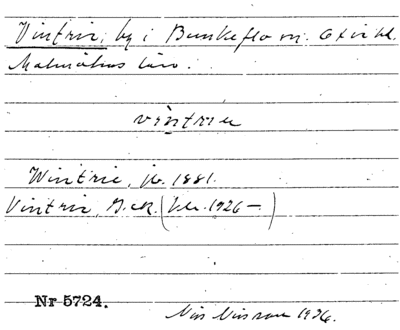 Vintrie, by i Bunkeflo sn. Oxie hd.
Malmöhus län.
vìntrie
Wintrie, jb. 1881.
Vintrie, G.ek. (Ve. 1926 – )
Nr 5724.
Nils Nilsson 1926.